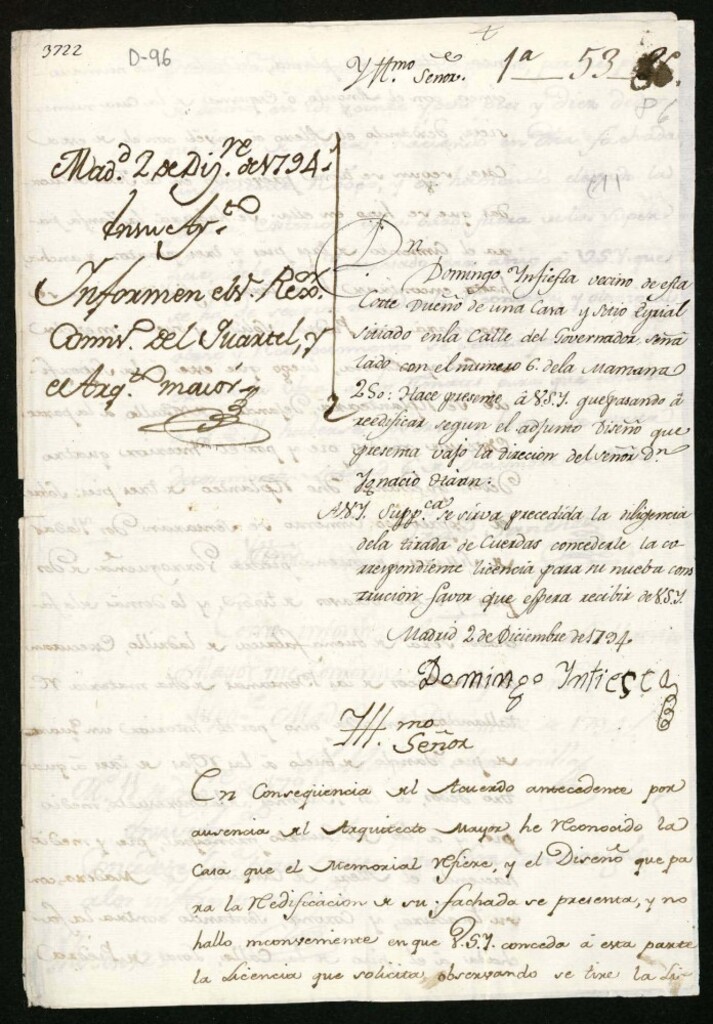 3722
D-96
Yll.mo Señor.
1a 53 86.
Mad.d 2 de Diz.re de 1794.
En su Ay.to
Informen el S.r Rexor.
Comis.o del Quartel, y
el Arq.to maior
Dn. Domingo Ynfiesta vecino de esta
Corte Dueño de una Casa y sitio Eyrial
sitiado enla Calle del Governador. Seña
lado con el numero 6. dela Manzana
250: Hace presente á V.S.Y. que pasando á
reedificar segun el adjunto Diseño que
presenta vajo la direcion del señor dn
Ygnacio Haan:
A V.S.Y. Supp.ca Se sirva precedida la diligencia
dela tirada de Cuerdas concederle la co-
rrespondiente licencia para su nueba cons
trucion favor que espera recibir de V.S.Y.
Madrid 2 de Diciembre de 1794.
Domingo Ynfiesta
Yll.mo Señor
En Conseqüencia del Acuerdo antecedente por
ausencia del Arquitecto Mayor he reconocido la
Casa que el Memorial refiere, y el Diseño que pa
ra la Redificacion de su fachada se presenta, y no
hallo inconveniente en que V.S.Y. conceda á esta parte
la Licencia que solicita, observando se tire la Li-